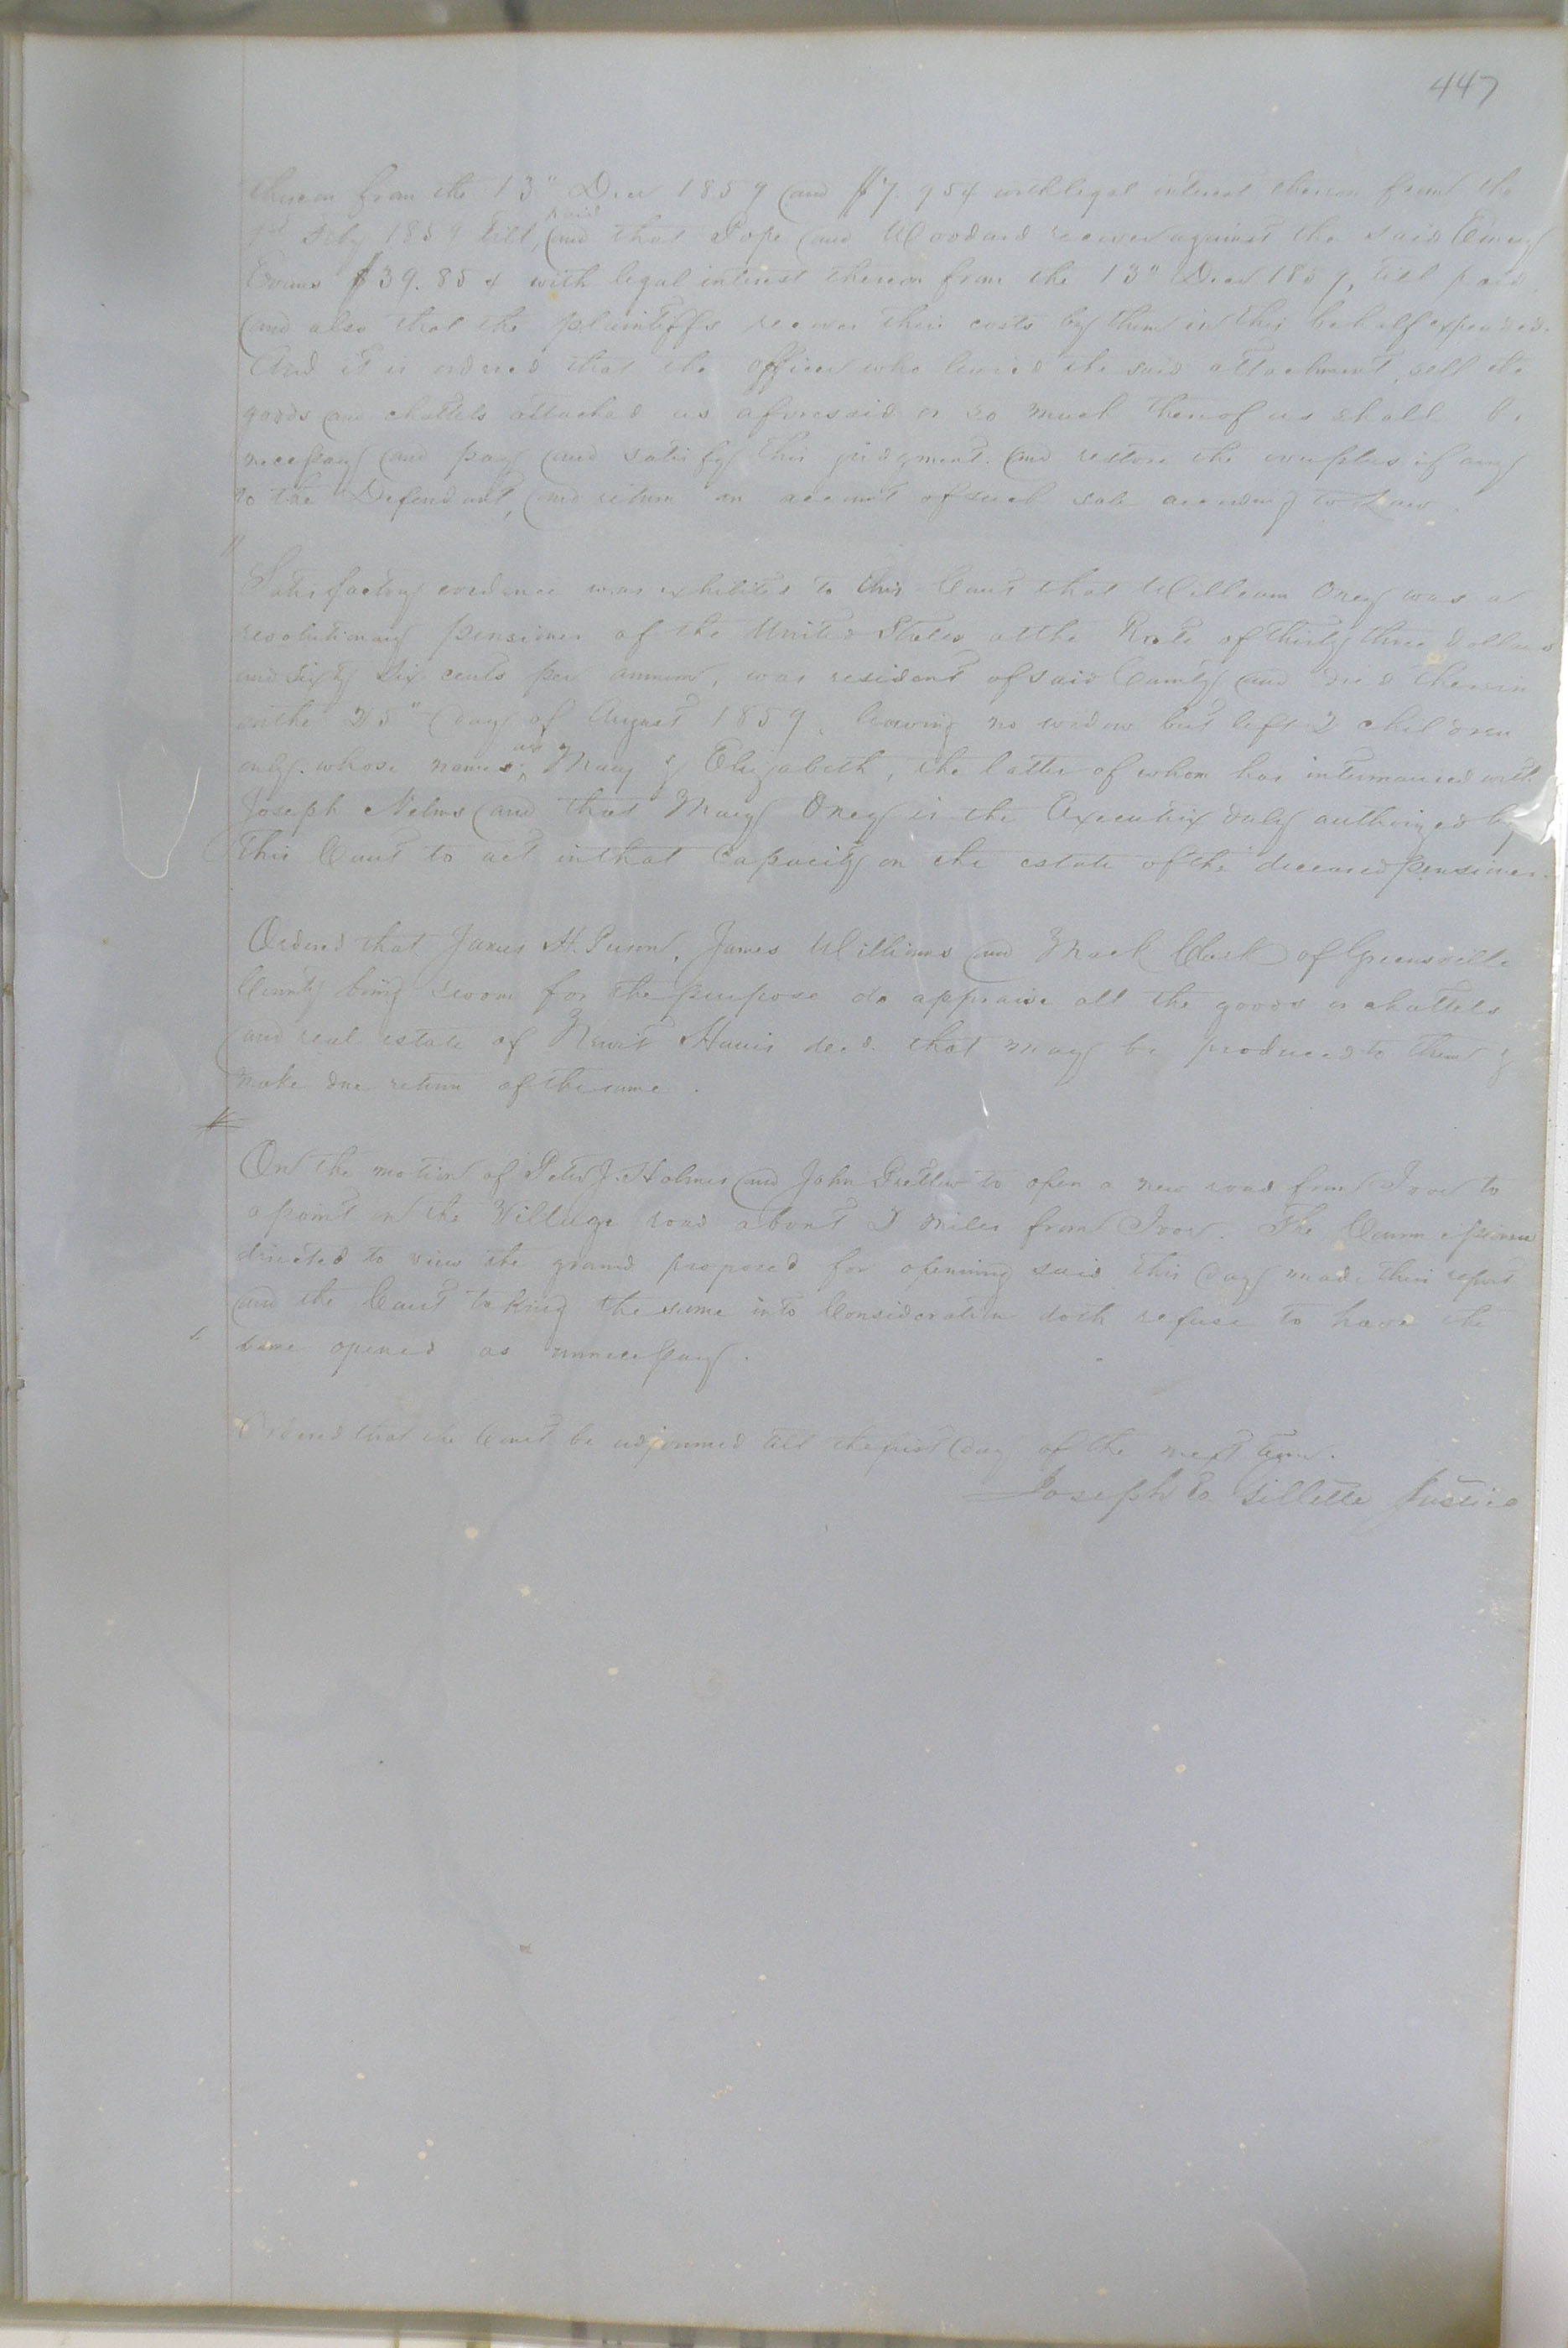 447
thereon from the 13" Decr 1859 and $7.954 with legal interest thereon from the
1st Feby 1859 till paid, and that Pope and Woodard recover against the said Emery
Evans $39.854 with legal interest thereon from the 13" Decr 1859, till paid
and also that the plaintiffs recover their costs by them in this behalf expended.
And it is ordered that the officer who levied the said attachment, sell the
goods and chattels attached as aforesaid or so much thereof as shall be
necessary and pay and satisfy this judgment. and restore the surplus if any
to the Defendant, and return an account of such sale according to Law.
Satisfactory evidence was exhibited to this Court that William Oney was a
revolutionary pensioner of the United States at the Rate of thirty three dollars
and Sixty Six cents per annum, was resident of said County and died therein
on the 25" day of August 1859, leaving no widow but left 2 children
only. whose names are Mary & Elizabeth, the latter of whom has intermarried with
Joseph Nelms and that Mary Oney is the Executrix duly authorized by
this Court to act in that Capacity on the estate of the deceased pensioner.
Ordered that James H. James Williams and Mack Clark of Greensville
County being sworn for the purpose do appraise all the goods or chattels
and real estate of Newit Harris decd. that may be produced to them &
make due return of the same.
On the motion of Peter J. Holmes and John to open a new road from Ivor to
a point on the Village road about 2 miles from Ivor. The
directed to view the ground proposed for opening said this day made their report
and the Court taking the same into Consideration doth refuse to have the
same opened as unnecessary.
Ordered that the Court be adjourned till the first day of the next term.
Joseph E. Gillette Justice